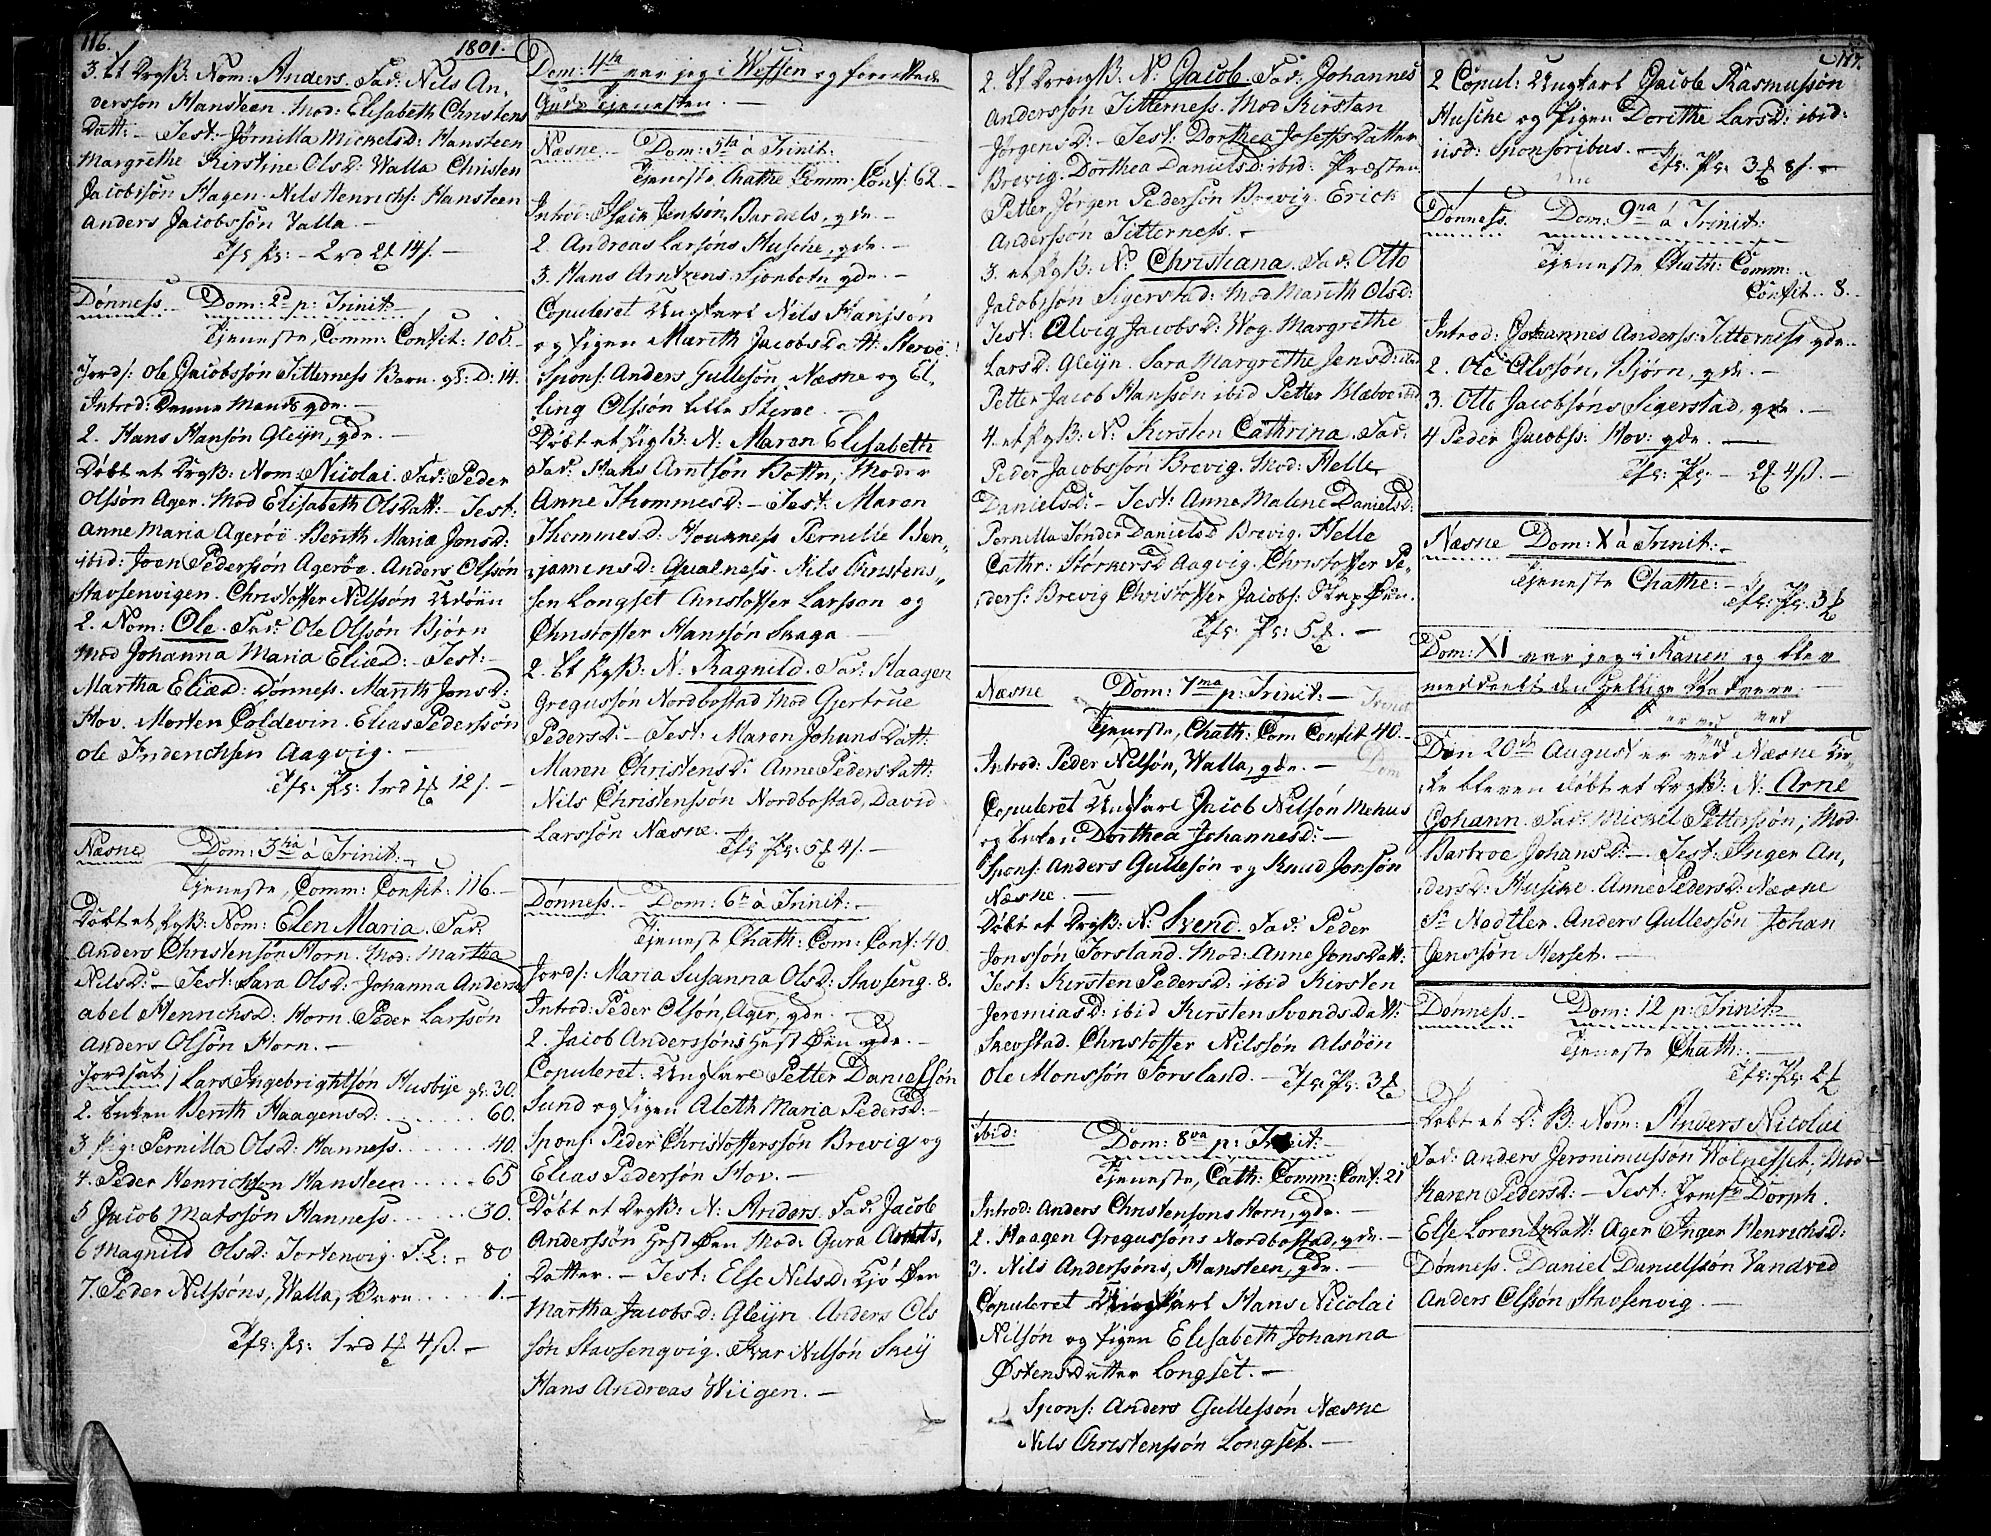 116.
1801.
3. Et DrgB: Nom: Anders. Fad: Nils An-
dersson Hansteen. Mod: Elisabeth Christens
Datt: - Test: Jørnilla Mickelsd: Hansteen
Margrethe Kirstine Olsd: Walla Christen
Jacobssøn Hagen. Nils Henrichs: Hansteen
Anders Jacobssøn Valla. -
Tfr: Pr: - 2 rd 2 14 s. -
Dønness. - Dom: 2d p: Trinit
Tjeneste, Comm: Confit: 105.
Jords: Ole Jacobssøn Titterness Barn. gl: D: 14.
Introd: Denne Mands gde. -
2. Hans Hansøn Gleijn, gde. -
Døbt et DrgB: Nom: Nicolai. Fad: Peder
Olssøn Ager. Mod Elisabeth OlsDatt: - Test:
Anne Maria Agerøe Berith Maria Jonsd:
ibid: Joen Pederssøn Agerøe. Anders Olssøn
Stavsenvigen. Christoffer Nilssøn
2. Nom: Ole. Fad: Ole Olssøn Bjørn
Mod Johanna Maria Eliæd: - Test:
Martha Eliæd: Dønness. Marith Jonsd:
Hov. Morten Coldevin. Elias Pederssøn
Ole Friderichsen Aagvig. -
Tfr: Pr: 1 rd 1 12 s. -
Næsne Dom: 3tia á Trinit: -
Tjeneste, Comm: Confit: 116. -
Døbt et PgB: Nom: Elen Maria. Fad:
Anders Christensøn Horn. Mod: Martha
Nilsd: - Test: Sara Olsd: Johanna Andersd
Abel Henrichsd: Horn. Peder Larssøn
Anders Olsøn Horn. -
Jordsat 1 Lars Ingebrightsøn Husbye gl: 30.
2. Enken Berith Haagensd: ...... 60.
3 Pig: Pernilla Olsd: Hanness ...... 40.
4. Peder Henrichsen Hansteen ..... 65
5 Jacob Matssøn Hanness ...... 30.
6 Magnild Olsd: Tortenvig. F. L: - 80
7. Peder Nilssøns, Walla, Barn ..... 1. -
Tfr: Pr: 1 rd 1 4 ß. -
Dom: 4ta var jeg i Wefsen og forrettede
Guds Tjenesten. -
Næsne - Dom: 5ta á Trinit:
Tjeneste Chathe Comm: Conf: 62. -
Introd: Isack Jenssøn, Bardals, gde. -
2. Andreas Larsøns Husche, gde. -
3. Hans Arntzens Sjonbotn gde. -
Copuleret Ungkarl Nils Hansøn
og Pigen Marith JacobsDatt: Sterve
Spons: Anders Gullesøn, Næsne og El-
ling Olssøn lille Sterve. -
Døbt et PigB: N: Maren Elisabeth
Fad: Hans Arntsøn Bottn, Moder
Anne Thommesd: - Test: Maren
Thommesd: Hounness Pernille Ben-
jamensd: Qualness. Nils Christens-
sen Longset Christoffer Larsson og
Christoffer Hanssøn Skaga
2. Et PgB: N: Ragnild. Fad: Haagen
Gregussøn Nordbostad Mod Gjertrue
Pedersd: - Test: Maren JohansDatt:
Maren Christensd: Anne PedersDatt:
Nils Christenssøn Nordbostad, David
Larssøn Næsne. -
Tfr: Pr: 5 4 s. -
Dønness. - Dom: 6ta á Trinit: -
Tjeneste Chath: Com: Conf: 40.
Jords: Maria Susanna Olsd: Stavseng. 8.
Introd: Peder Olsøn, Ager, gde. -
2. Jacob Anderssøns Hest Øen gde. -
Copuleret: Ungkarl Petter Danielssøn
Sund og Pigen Aleth Maria Pedersd: -
Spons: Peder Christofferssøn Brevig og
Elias Pedersøn Hov. -
Døbt et DrgB: N: Anders. Fad: Jacob
Anderssøn Hest Øen Mod: Gura Arnts-
Datter. - Test: Else Nilsd:
Martha Jacobsd: Gleijn. Anders Ols
søn Stavsenqvig. Ivar Nilsøn Skeij
Hans Andreas Wiigen. -
2. Et DrengB: N: Jacob. Fad: Johannes
Anderssøn Titterness. Mod Kirstan
Jørgensd: - Test: Dorthea JosefsDatter
Brevig. Dorthea Danielsd: ibid: Præsten
Petter, Jørgen Pederssøn Brevig. Erick
Anderssøn Titterness. -
3. et PgB: N: Christiana. Fad: Otto
Jacobssøn Sigerstad: Mod Marith Olsd:
Test: Olvig Jacobsd: Wog. Margrethe
Larsd: Gleijn. Sara Margrethe Jensd: ibid
Petter Jacob Hanssøn ibid Petter Klæboe ibid
4. et PgB: N: Kirsten Cathrina. Fad:
Peder Jacobssøn Brevig. Mod: Helle
Danielsd: - Test: Anne Malene Danielsd:
Pernilla Tønder Danielsd Brevig. Helle
Cathr: Størkersd Aagvig. Christoffer Pe-
ders: Brevig Christoffer Jacobs:
Tfr: Pr: 5 . -
Næsne Dom: 7ma p: Trinit: -
Tjeneste, Chath: Com Confit 40. -
Introd: Peder Nilsøn, Walla, gde. -
Copuleret Ungkarl Jacob Nilsøn Mehus
og Enken Dorthea Johannesd: -
Spons: Anders Gullesøn og Knud Jonsøn
Næsne. -
Døbt et DrgB: N: Svend. Fad: Peder
Jonssøn Forsland. Mod: Anne JonsDatt:
Test: Kirsten Pedersd: ibid Kirsten
Jeremiasd: ibid Kirsten SvendsDatt:
Skevstad. Christoffer Nilssøn Alsøen
Ole Monssøn Forsland. - Tfr: Pr: 3
ibid: Dom: 8va p: Trinit: -
Tjeneste, Cath: Comm: Conf: 21
Introd: Anders Christensøns Horn, gde. -
2. Haagen Gregussøns Nordbostad, gde. -
3. Nils Anderssøns, Hansteen, gde. -
Copuleret Ungkarl Hans Nicolai
Nilsøn og Pigen Elisabeth Johanna
Østensdatter Longset. -
Spons: Anders Gullessøn Næsne
Nils Christenssøn Longset. -
117.
2 Copul: Ungkarl Jacob Rasmussøn
Husche og Pigen Dorithe Larsd: ibid:
iisd: Sponsoribus. -
Tfr: Pr: 3 8 s. -
Dønness. Dom: 9na á Trinit:
Tjeneste Chath: Comm:
Confit. 8. -
Introd: Johannes Anderss: Titterness gde. -
2. Ole Olssøn, Bjørn, gde. -
3. Otto Jacobsøns Sigerstad, gde. -
4 Peder Jacobss: Hov: gde. -
Tfr: Pr: - 2 4 ß. -
Næsne Dom: X á Trinit: -
Tjeneste Chathe: -
Tfr: Pr: 3
Dom: XI var jeg i Ranen og blev
meddeelt den Hellige Nadvere. -
er ved ved
Den 20de August er ved Næsne Kir-
ke bleven døbt et DrgB: N: Arne
Johann. Fad: Mickel Petterssøn, Mod:
Barbroe Johansd: -. Test: Inger An-
dersd: Husche. Anne Pedersd: Næsne
Sr Nodtler. Anders Gullessøn Johan
Jenssøn Herset. -
Dønness. - Dom: 12 p: Trinit:
Tjeneste Chath: -
Tfr: Pr: 2
Døbt et D: B: Nom: Anders Nicolai
Fad: Anders Jeronimussøn Wolnesset, Mod
Karen Pedersd: - Test: Jomfr Dorph.
Else LorentzDatt: Ager Inger Henrichsd:
Dønness. Daniel Danielssøn Vandved
Anders Olssøn Stavsenvig. -